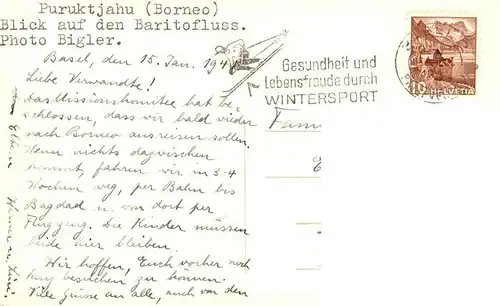 Puruktjahu (Borneo)
Blick auf den Baritofluss.
Photo Bigler.
Basel, den 15. Jan. 194
Liebe Verwandte!
Das Missionskomitee hat be-
schlossen, dass wir bald wieder
nach Borneo ausreisen sollen.
Wenn nichts dazwischen
kommt, fahren wir in 3-4
Wochen weg, per Bahn bis
Bagdad u. von dort per
Flugzeug. Die Kinder müssen
beide hier bleiben.
Wir hoffen, Euch vorher noch
kurz besuchen zu können.
Viele Grüsse an alle, auch von den
Eltern
Werner u.
Gesundheit und
Lebensfreude durch
WINTERSPORT
Fam
10 HELVETIA